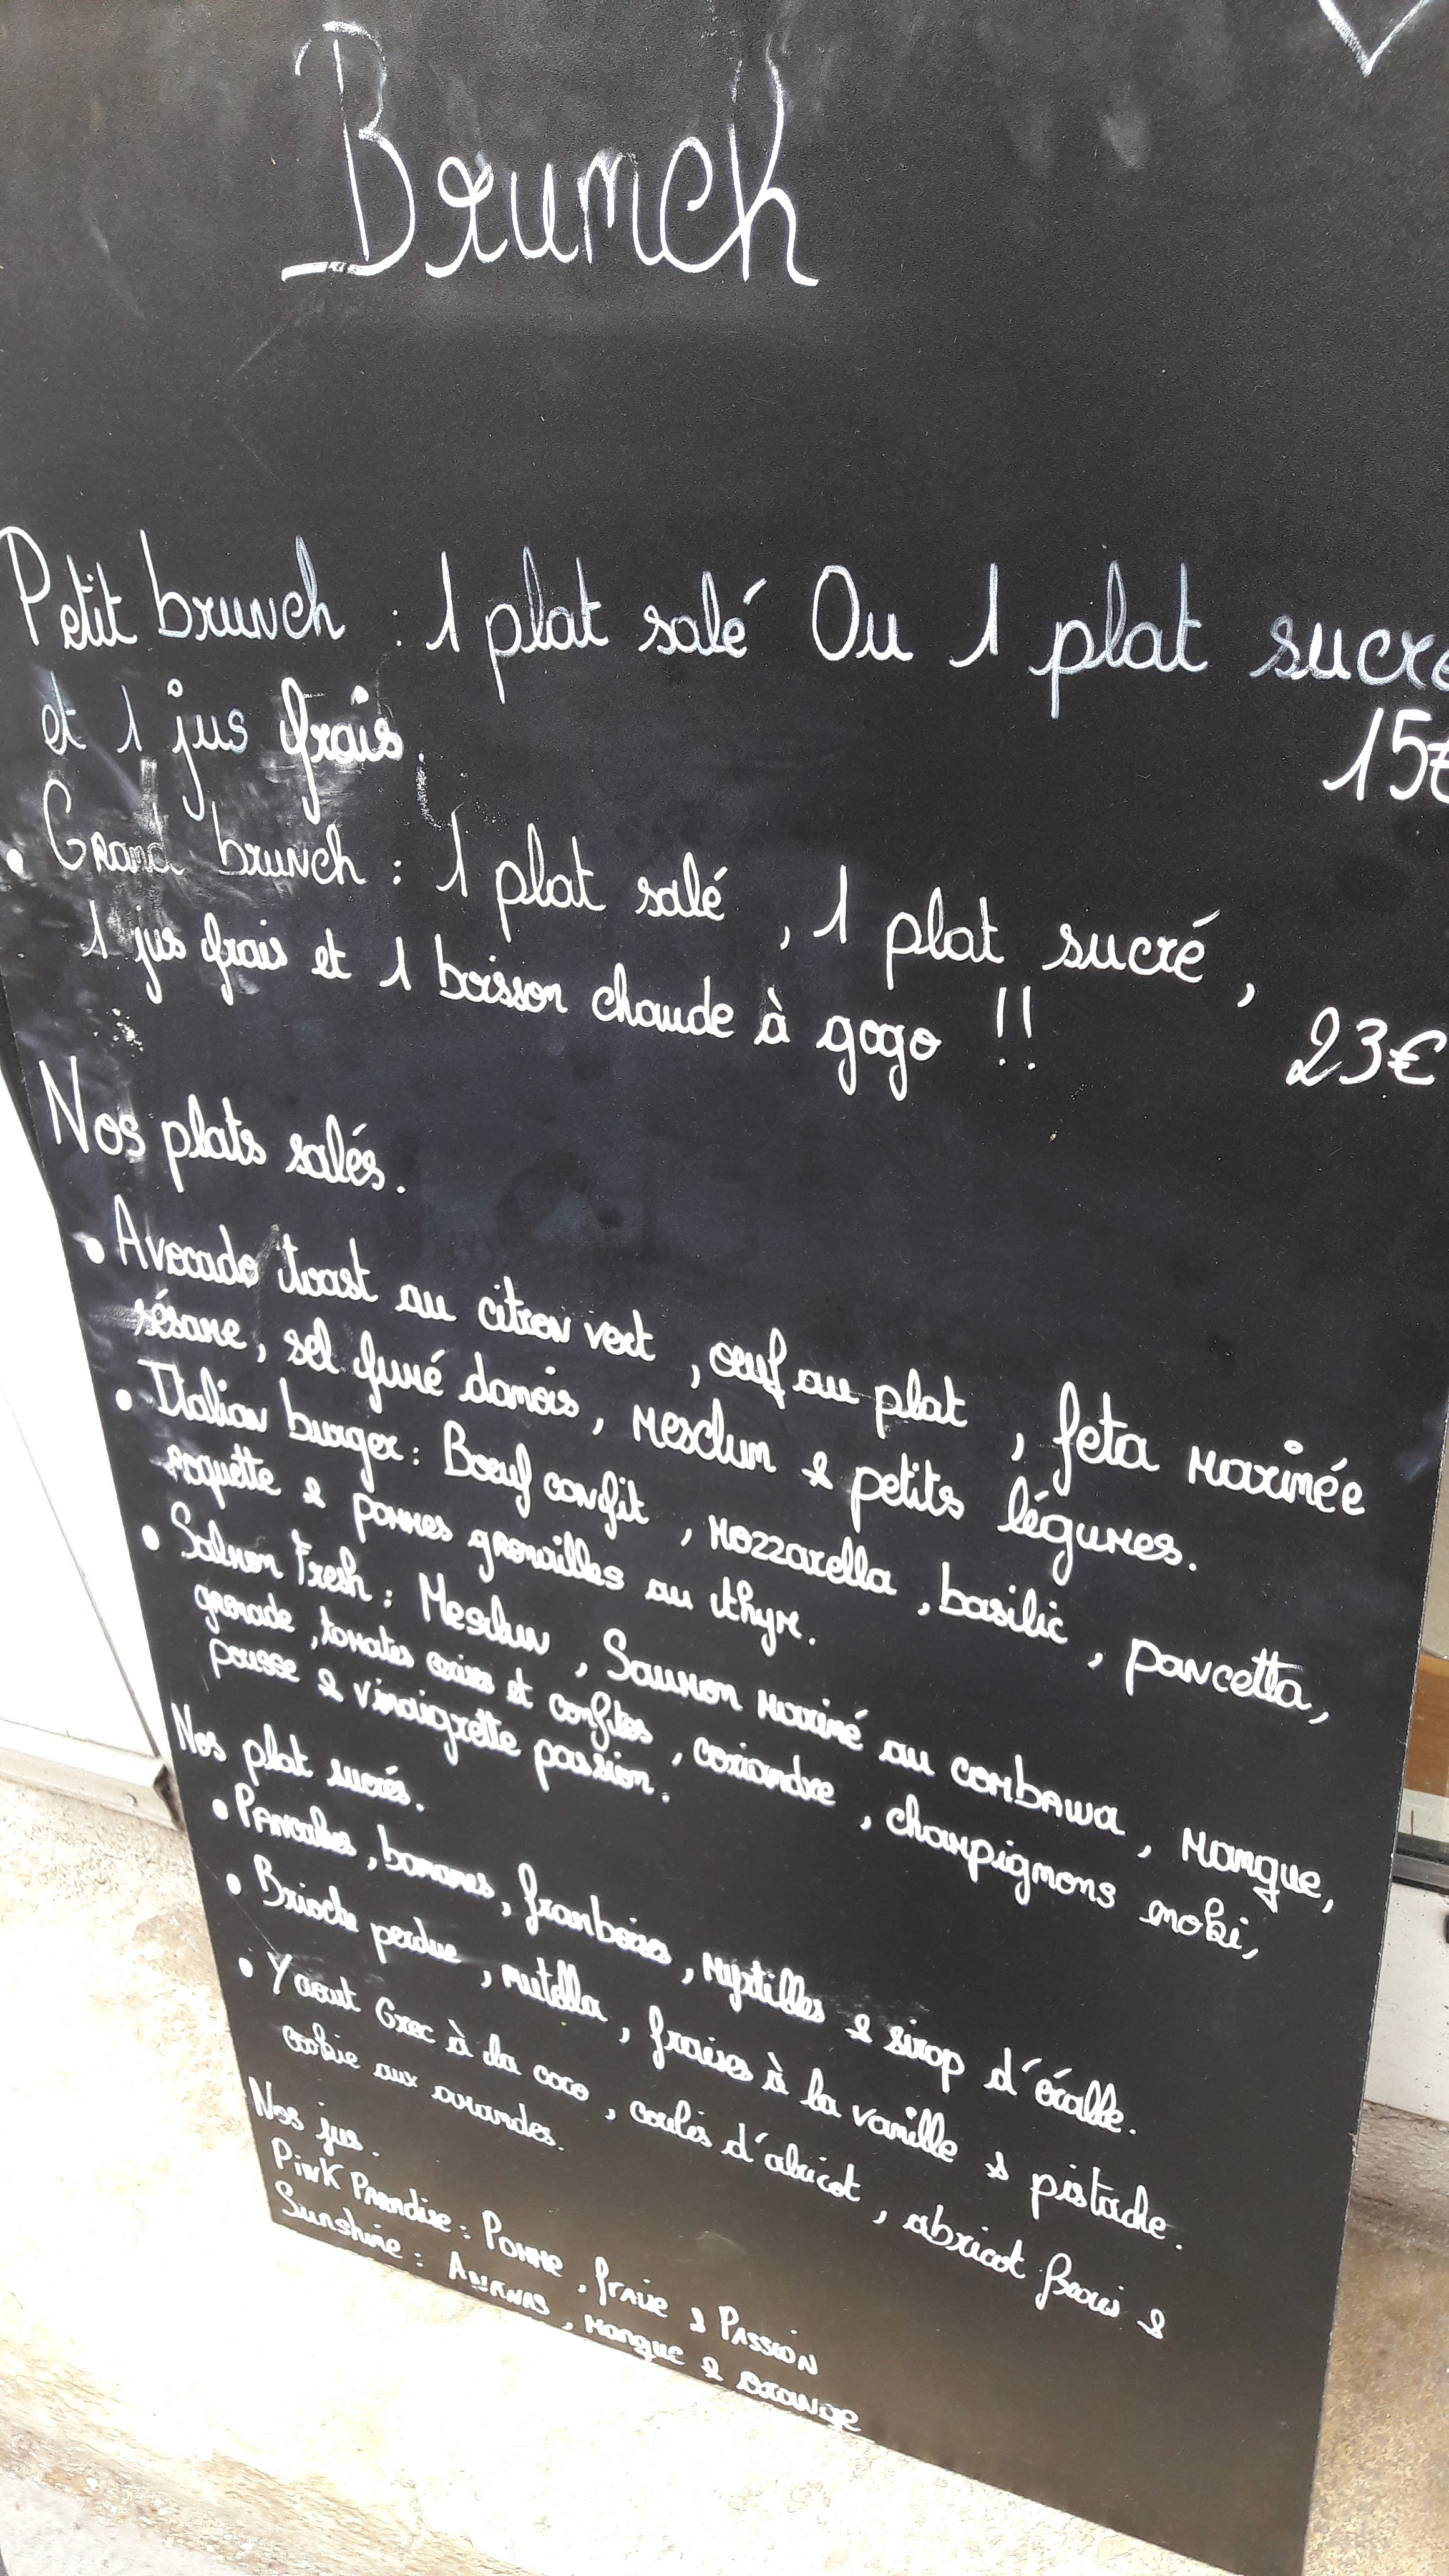 Brunch
Petit brunch : 1 plat salé Ou 1 plat sucré
et 1 jus frais.
15€
• Grand brunch : 1 plat salé, 1 plat sucré,
1 jus frais et 1 boisson chaude à gogo !!
23€
Nos plats salés.
• Avocado toast au citron vert, œuf au plat, feta marinée
sésame, sel fumé danois, mesclun & petits légumes.
• Italian burger : Bœuf confit, mozzarella, basilic, pancetta,
roquette & pommes grenailles au thym.
• Salmon Fresh : Mesclun, Saumon mariné au combawa, mangue,
grenade, tomates cerises et confites, coriandre, champignons enoki,
pousse & vinaigrette passion.
Nos plat sucrés.
• Pancakes, bananes, framboises, myrtilles & sirop d'érable.
• Brioche perdue, nutella, fraises à la vanille & pistache.
• Yaourt Grec à la coco, coulis d'abricot, abricot frais &
cookie aux amandes.
Nos jus.
Pink Paradise : Pomme, fraise & Passion
Sunshine : Ananas, mangue & orange